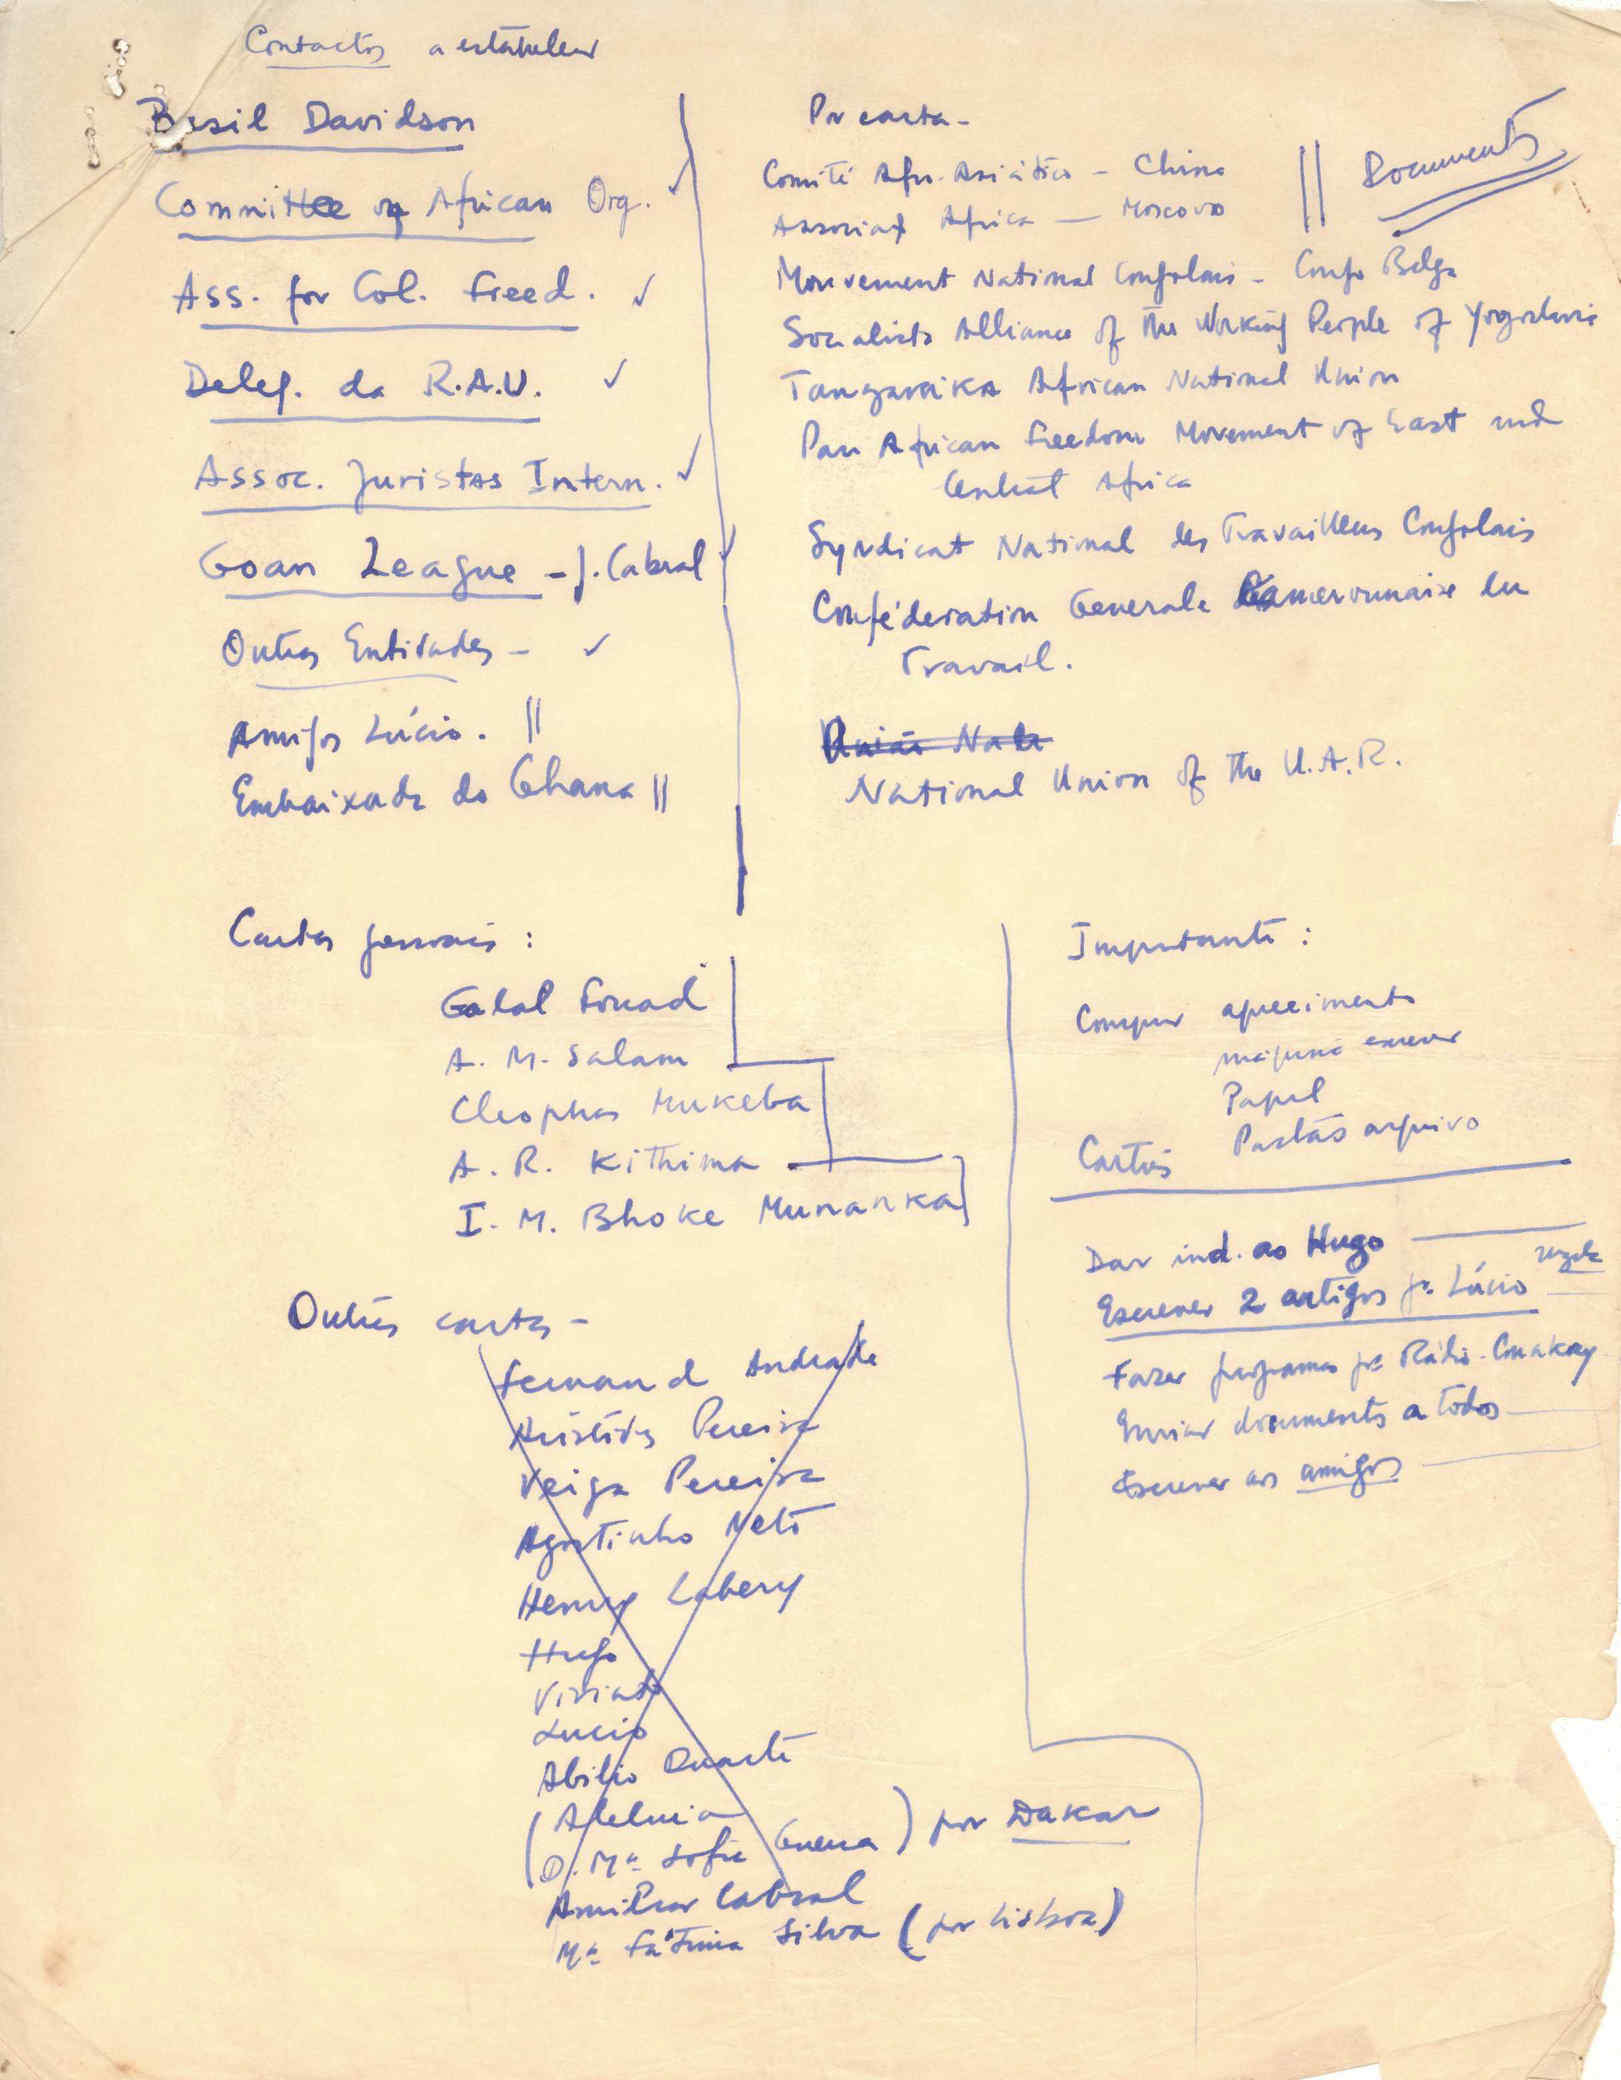 Contactos a estabelecer
Basil Davidson
Committee of African Org.
Ass. for Col. Freed.
Deleg. da R.A.U.
Assoc. Juristas Intern.
Goan League - J. Cabral
Outras Entidades -
Amigos Lúcio.
Embaixada do Ghana
Por carta -
Comité Afro-Asiático - China
Associaç África - Moscovo
Documentos
Mouvement National Congolais - Congo Belga
Socialists Alliance of the Working People of Yogoslavia
Tanganika African National Union
Pan African Freedom Movement of East and
Central Africa
Syndicat National des Travailleurs Congolais
Conféderation Generale Camerounaise du
Travail.
União Nab
National Union of the U.A.R.
Cartas pessoais :
Galal Fouad
A. M. Salam
Cleophas Mukeba
A. R. Kithima
I. M. Bhoke Munanka
Outras cartas -
Fernand Andrade
Aristides Pereira
Veiga Pereira
Agostinho Neto
Henry Labery
Hugo
Viriato
Lucio
Abílio Duarte
(Aleluia
D. Mª Sofia Guerra) por Dakar
Amilcar Cabral
Mª Fátima Silva (por Lisboa)
Importante :
Comprar agrecimento
máquina escrever
Papel
Pastas arquivo
Cartões
Dar ind. ao Hugo
Escrever 2 artigos pª Lúcio
Fazer programas pª Rádio-Conakry
Enviar documentos a todos
Escrever aos amigos